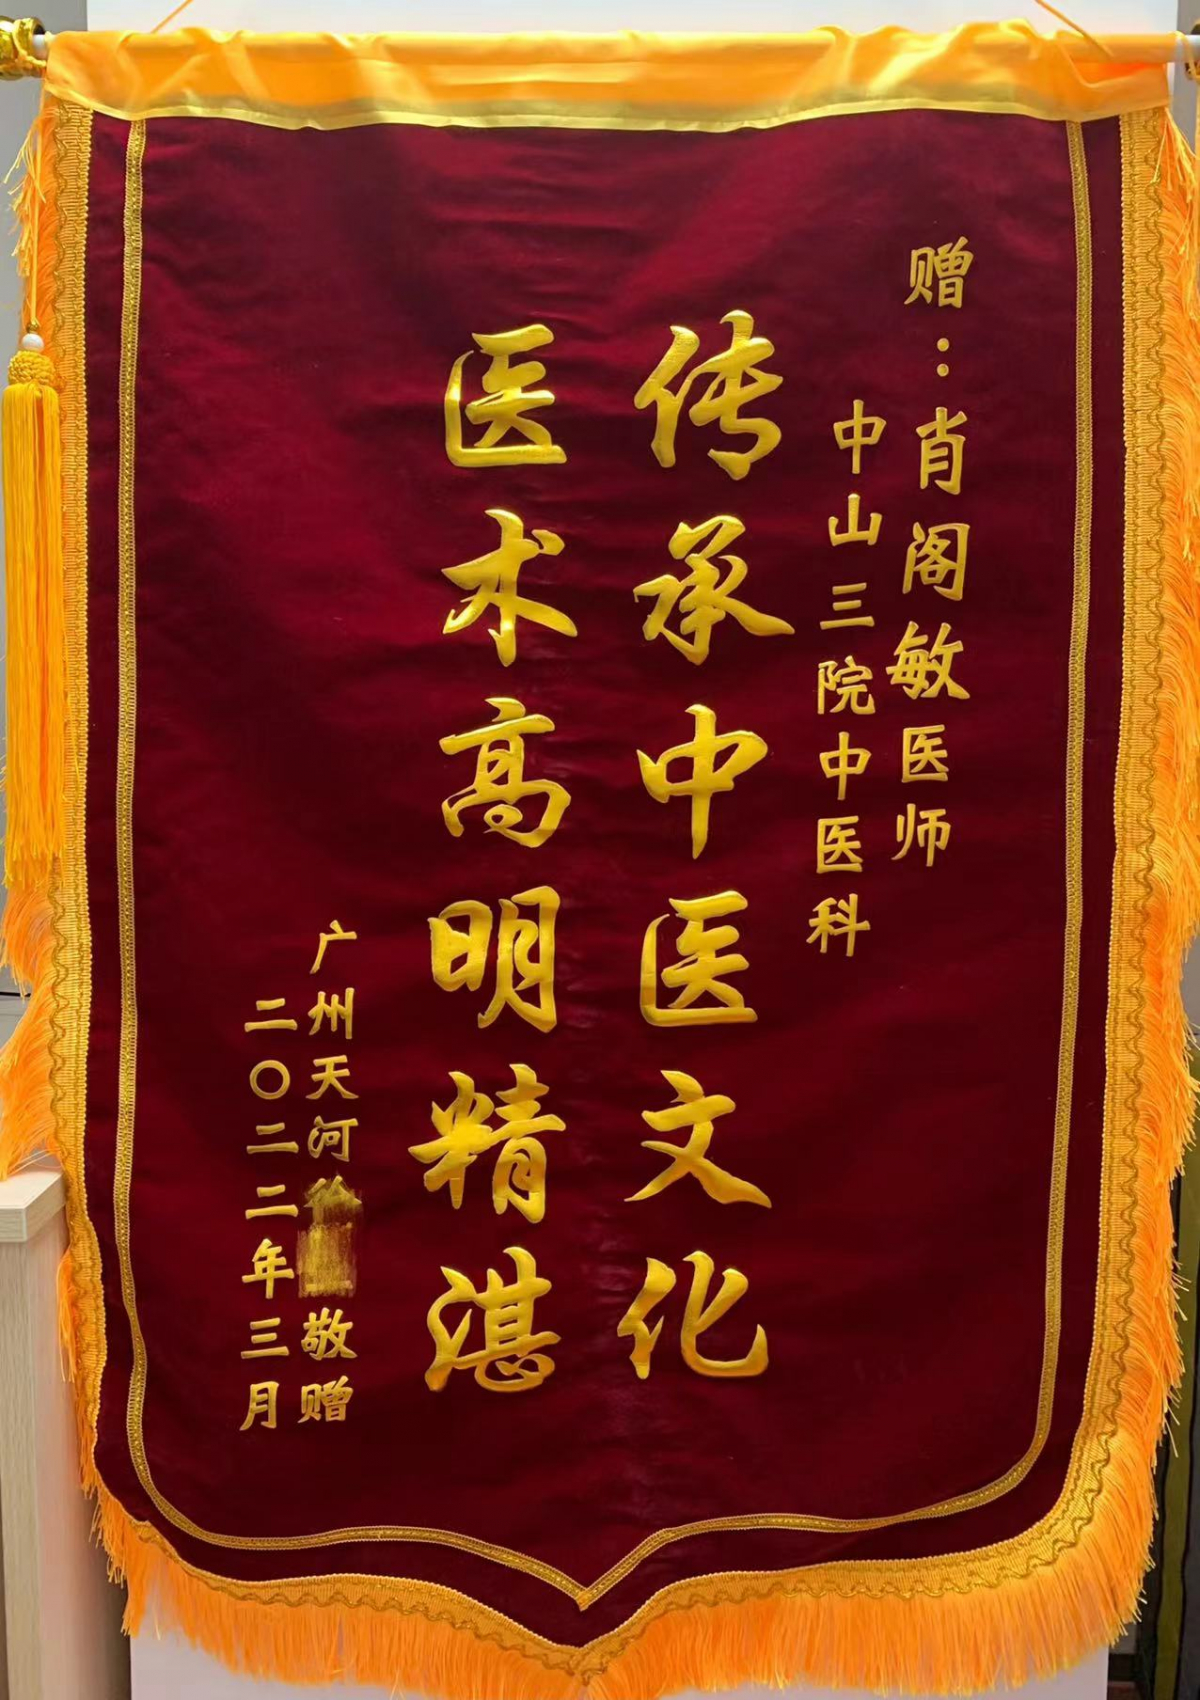 赠：肖阁敏医师
中山三院中医科
传承中医文化
医术高明精湛
广州天河
敬赠
二〇二二年三月